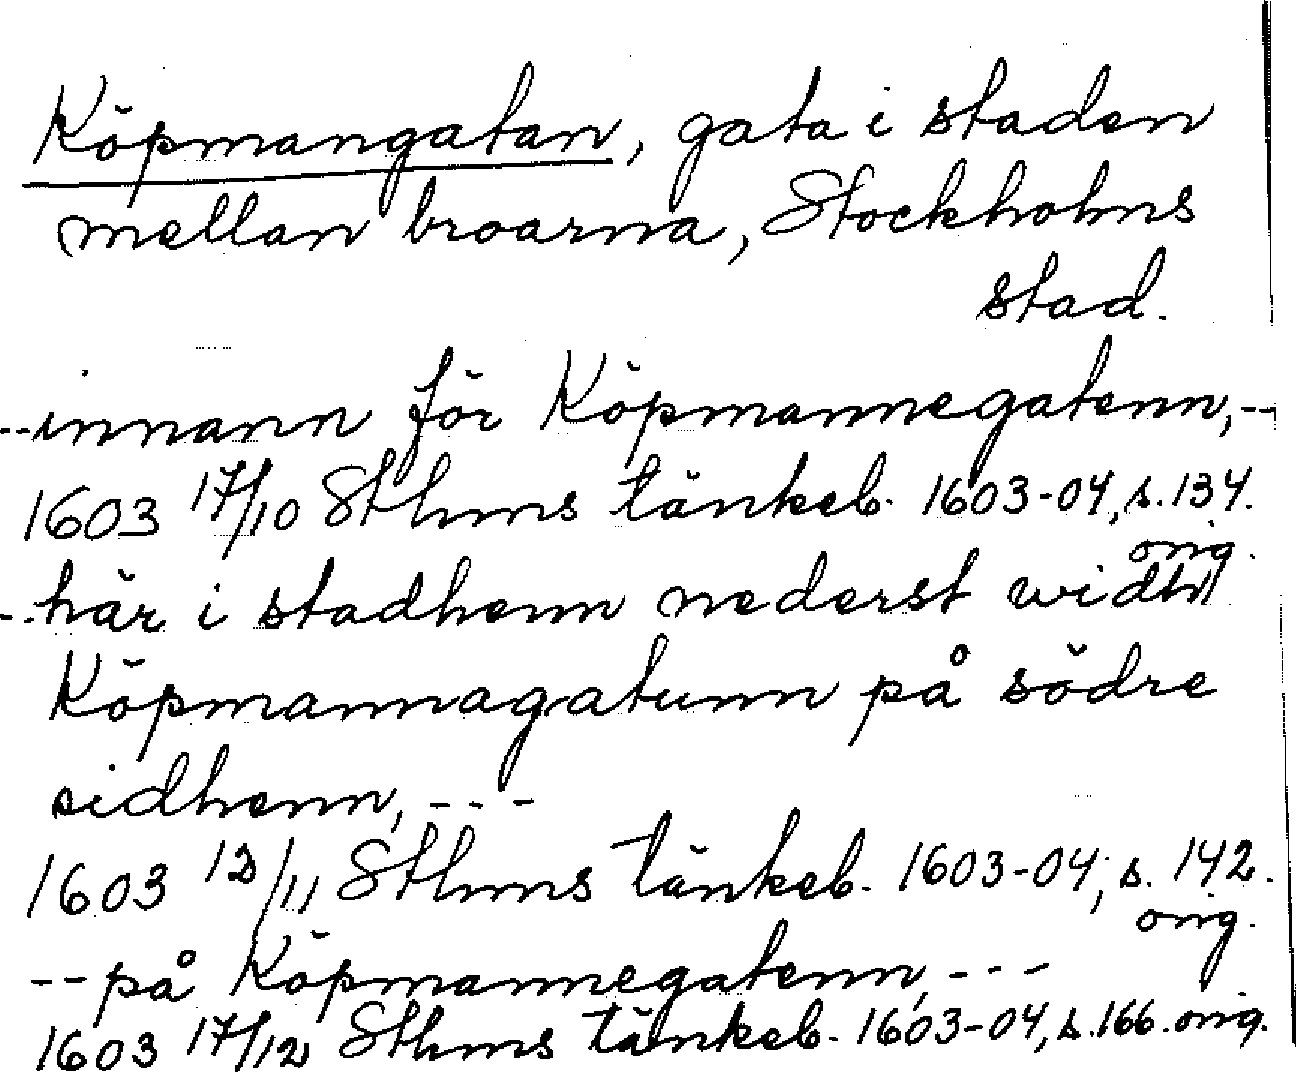 Köpmangatan, gata i staden
mellan broarna, Stockholms
stad.
--innann för Köpmannegatenn,--
1603 17/10 Sthms tänkeb. 1603-04, s. 134.
orig.
--här i stadhenn nederst widh
Köpmannagatunn på södre
sidhenn, ---
1603 12/11 Sthms tänkeb. 1603-04, s. 142.
orig.
--på Köpmannegatenn, ---
1603 17/12 Sthms tänkeb. 1603-04, s. 166. orig.